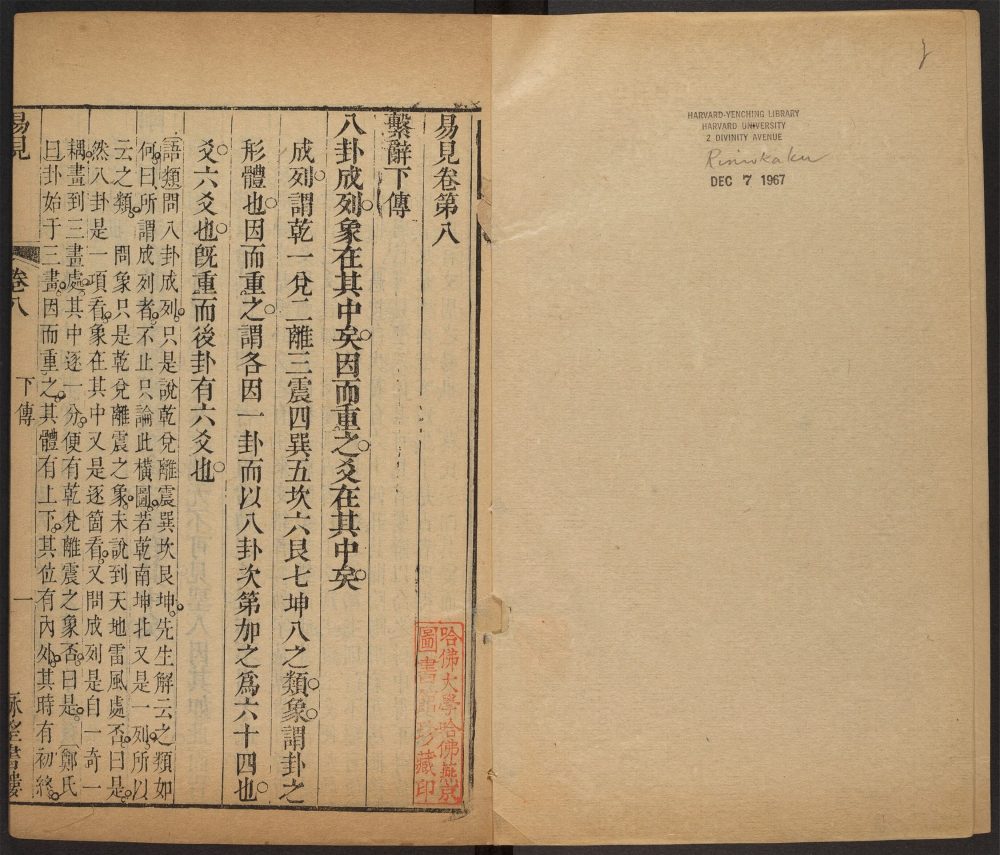 HARVARD-YENCHING LIBRARY
HARVARD UNIVERSITY
2 DIVINITY AVENUE
Rinrokaku
DEC 7 1967
易見卷第八
繫辭下傳
八卦成列。象在其中矣。因而重之。爻在其中矣。
成列。謂乾一兌二離三震四巽五坎六艮七坤八之類。象。謂卦之
形體也。因而重之。謂各因一卦而以八卦次第加之爲六十四也。
爻。六爻也。旣重而後卦有六爻也。
語類問八卦成列。只是說乾兌離震巽坎艮坤。先生解云之類如
何。曰。所謂成列者。不止只論此橫圖。若乾南坤北又是一列。所以
云之類。問象只是乾兌離震之象。未說到天地雷風處否。曰是。
然八卦是一項看。象在其中又是逐箇看。又問成列是自一奇一
耦畫到三畫處。其中逐一分。便有乾兌離震之象否。曰是。鄭氏
曰卦始于三畫。因而重之。其體有上下。其位有內外。其時有初終。
易見
卷八
下傳
一
詠堂書樓
哈佛大學哈佛燕京
圖書館珍藏印